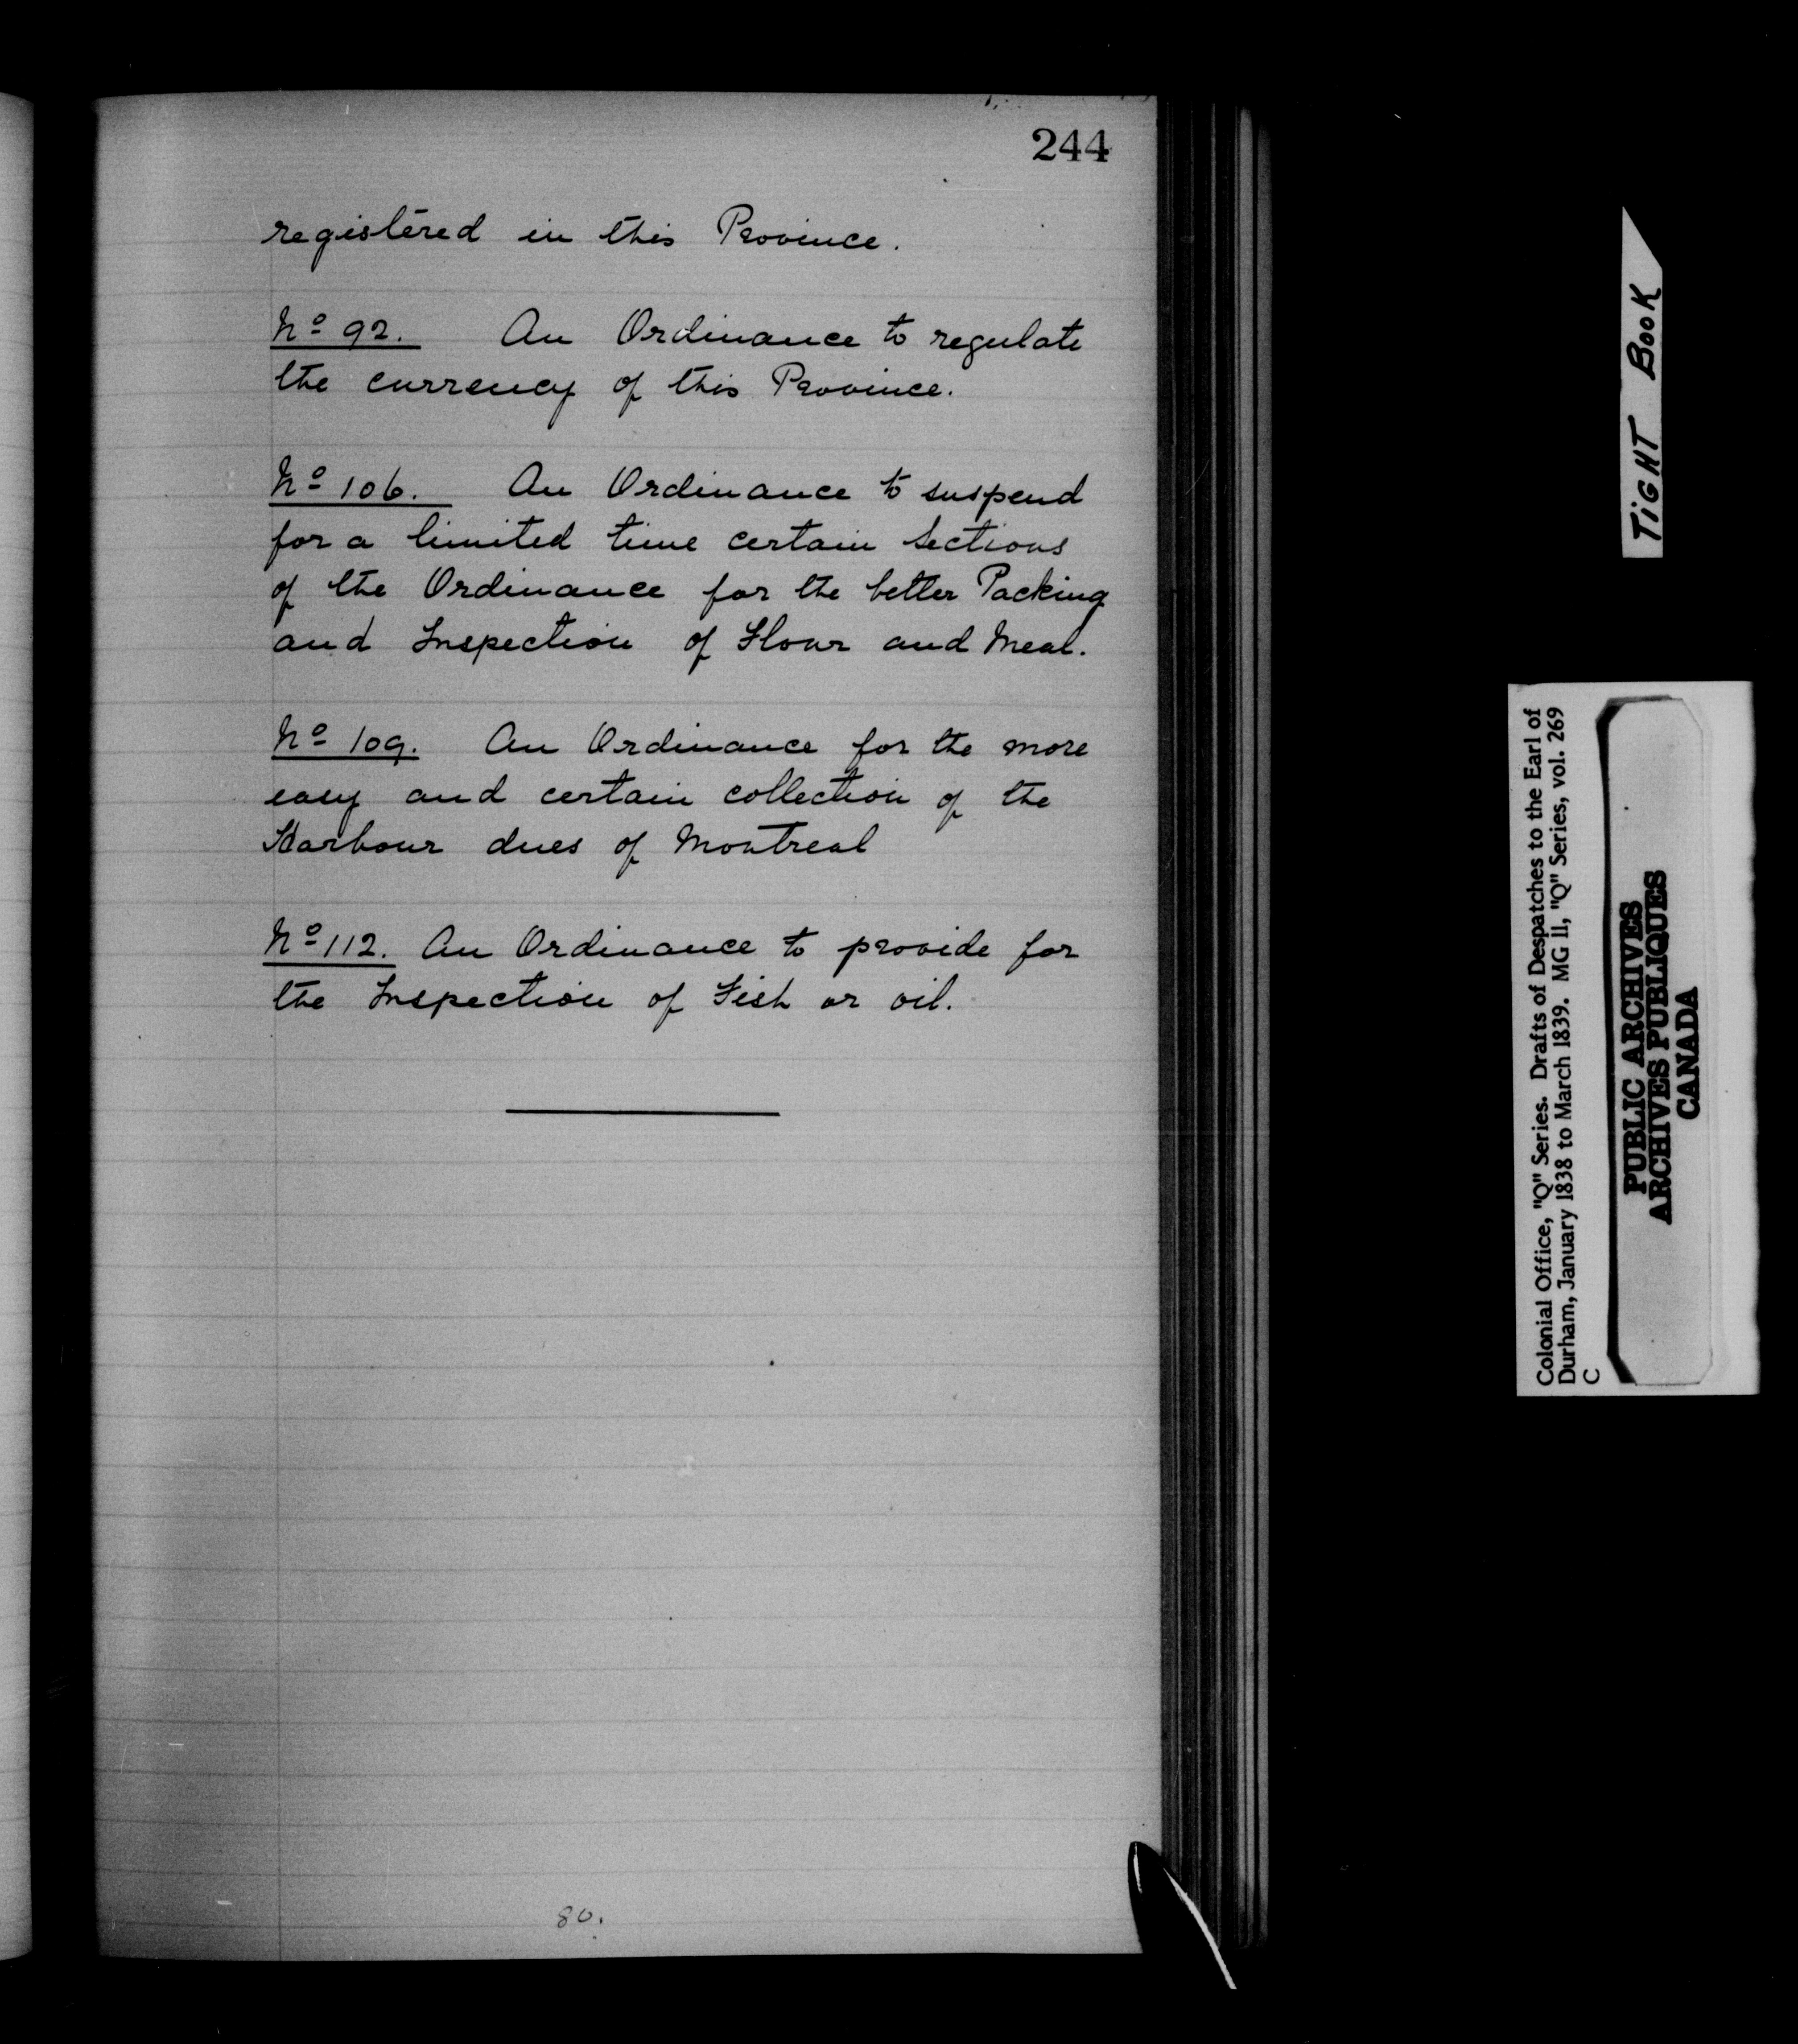 244
registered in this Province.
No 92. An Ordinance to regulate
the currency of this Province.
No 106. An Ordinance to suspend
for a limited time certain Sections
of the Ordinance for the better Packing
and Inspection of Flour and Meal.
No 109. An Ordinance for the more
easy and certain collection of the
Harbour dues of Montreal
No 112. An Ordinance to provide for
the Inspection of Fish or oil.
80.
TIGHT BOOK
Colonial Office, "Q" Series. Drafts of Despatches to the Earl of
Durham, January 1838 to March 1839. MG 11, "Q" Series, vol. 269
C
PUBLIC ARCHIVES
ARCHIVES PUBLIQUES
CANADA